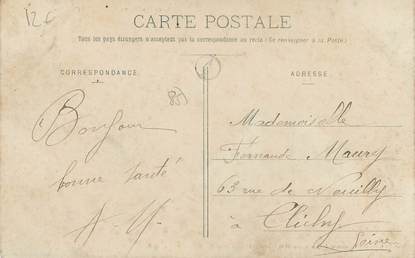 12€
CARTE POSTALE
Tous les pays étrangers n'acceptent pas la correspondance au recto (Se renseigner à la Poste)
CORRESPONDANCE
ADRESSE
Bonjour
bonne santé
Mademoiselle
Fernande Maury
63 rue de Neuilly
à Clichy
Seine